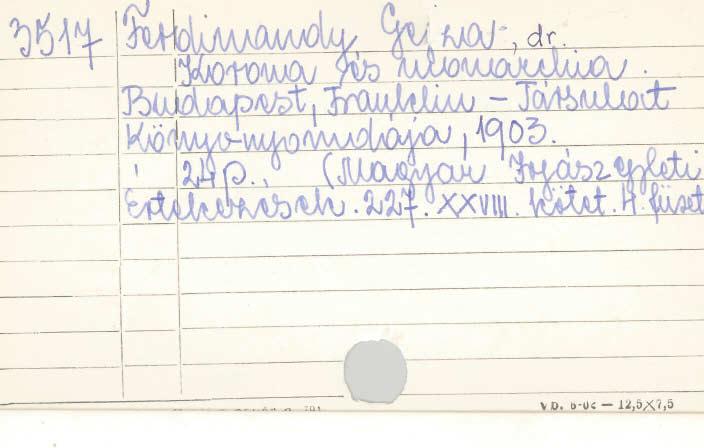 3517 Ferdinandy Gejza, dr.
Korona és monarchia.
Budapest, Franklin - Társulat
Könyvnyomdája, 1903.
24 p., (Magyar Jogászegyleti
Értekezések. 227. XXVIII. kötet. 4. füzet
V D. 6-06 — 12,5X7,5